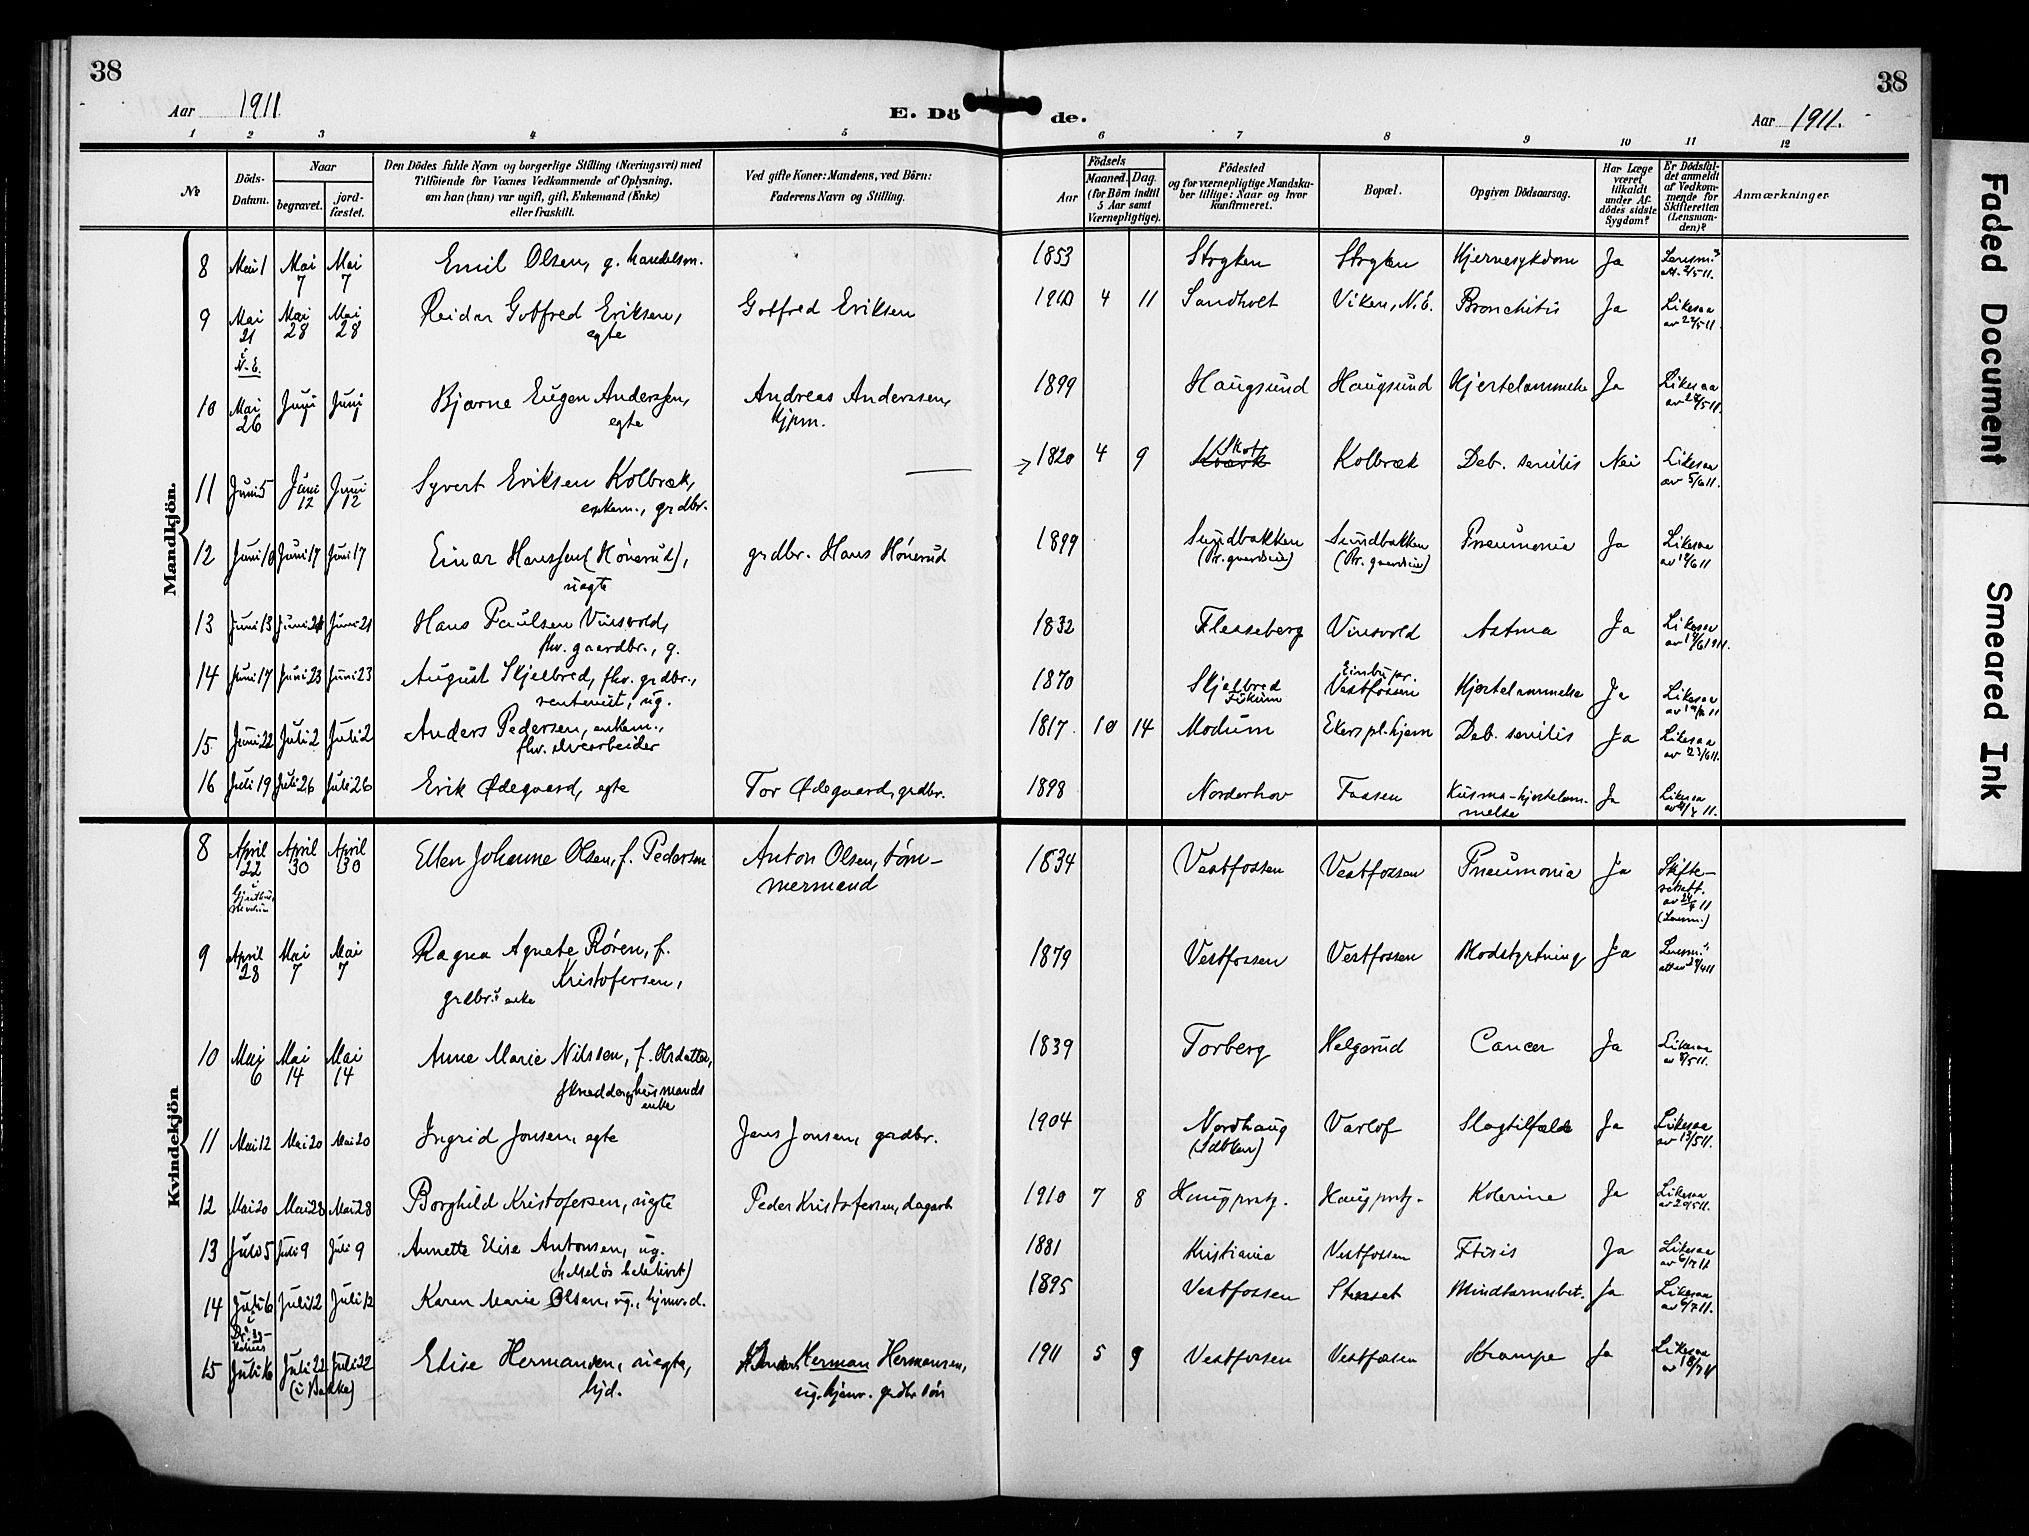 38
38
Aar 1911.
E. Dö de.
Aar 1911.
1 2 3 4 5 6 7 8 9 10 11 12
No
Döds-Datum.
Naar
begravet.
jord-fæstet.
Den Dödes fulde Navn og borgerlige Stilling (Næringsvei) med
Tilföiende for Voxnes Vedkommende af Oplysning,
om han (hun) var ugift, gift, Enkemand (Enke)
eller fraskilt.
Ved gifte Koner: Mandens, ved Börn:
Faderens Navn og Stilling.
Födsels
Aar
Maaned. Dag.
(for Börn indtil
5 Aar samt
Værnepligtige).
Födested
og for værnepligtige Mandska-
ber tillige: Naar og hvor
konfirmeret.
Bopæl.
Opgiven Dödsaarsag.
Har Læge
været
tilkaldt
under Af-
dödes sidste
Sygdom?
Er Dödsfal-
det anmeldt
af Vedkom-
mende for
Skifteretten
(Lensman-
den)?
Anmærkninger.
Mandkjön.
8 Mai 1 Mai 7 Mai 7 Emil Olsen, g. handelsm. 1853 Stryken Stryken Hjernesykdom Ja Lensm.
9 Mai 21 i N.E. Mai 28 Mai 28 Reidar Gotfred Eriksen, Gotfred Eriksen 1910 4 11 Sandholt Viken, N.E. Bronchitis Ja Likesaa
egte av 22/5 11.
10 Mai 26 Juni Juni Bjarne Eugen Anderssen, Andreas Anderssen, 1899 Haugsund Haugsund Hjertelammelse Ja Likesaa
egte kjpm.
11 Juni 5 Juni 12 Juni 12 Syvert Eriksen Kolbræk, — 1820 4 9 Skot Kolbræk Deb. senilis Nei Likesaa
enkem., grdbr. av 5/6 11.
12 Juni 10 Juni 17 Juni 17 Einar Hanssen (Hönerud), grdbr. Hans Hönerud 1899 Sundbakken Sundbakken Pneumonia Ja Likesaa
uegte
13 Juni 13 Juni 21 Juni 21 Hans Paulsen Vinsvold, 1832 Flesseberg Vinsvold Astma Ja Likesaa
fhv. gaardbr., g.
14 Juni 17 Juni 23 Juni 23 August Skjelbred, fhv. grdbr., 1870 Skjelbred Fiskum Vestfossen Hjertelammelse Ja Likesaa
ug.
15 Juni 22 Juli 2 Juli 2 Anders Pedersen, enkem., 1817 10 14 Modum Ekers pl.hjem Deb. senilis Ja Likesaa
fhv. elvearbeider av 23/6 11.
16 Juli 19 Juli 26 Juli 26 Erik Ødegaard, egte Tor Ødegaard, grdbr. 1898 Norderhov Faasen Kusma-hjertelam-
melse Ja Likesaa
Kvindekjön
8 April 22 April 30 April 30 Ellen Johanne Olsen, f. Pedersen Anton Olsen, töm-
mermand 1834 Vestfossen Vestfossen Pneumonia Ja Skifte-
9 April 28 Mai 7 Mai 7 Ragna Agnete Rören, f. 1879 Vestfossen Vestfossen Modstyrtning Ja Lensm.
Kristofersen,
grdbr.s enke
10 Mai 6 Mai 14 Mai 14 Anne Marie Nilssen, f. Olsdatter, 1839 Torberg Helgerud Cancer Ja Likesaa
husmands
enke
11 Mai 12 Mai 20 Mai 20 Ingrid Jonsen, egte Jens Jonsen, grdbr. 1904 Nordhaug Varlof Slagtilfælde Ja Likesaa
av 13/5 11.
12 Mai 20 Mai 28 Mai 28 Borghild Kristofersen, uegte Peder Kristofersen, dagarb. 1910 7 8 Haug prstg. Haug prstg. Kolerine Ja Likesaa
13 Juli 5 Juli 9 Juli 9 Annette Elise Antonsen, ug. 1881 Kristiania Vestfossen Ftisis Ja Likesaa
14 Juli 6 Juli 12 Juli 12 Karen Marie Olsen, ug., hjmv. d. 1895 Vestfossen Blindtarmsbet. Ja Likesaa
15 Juli 16 Juli 22 Juli 22 Elise Hermansen, uegte, Herman Hermansen, 1911 5 9 Vestfossen Vestfossen Krampe Ja Likesaa
(i Bakke) hjd. ug. hjmv. grdbr. sön av 18/7 11
Faded Document
Smeared Ink